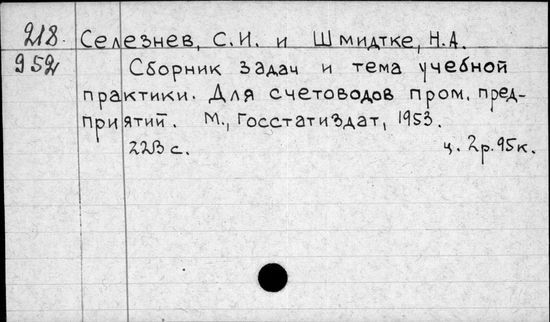 218. Селезнев, С.И. и Шмидтке, Н.А.
952 Сборник задач и тема учебной
практики. Для счетоводов пром. пред-
приятий. М., Госстатиздат, 1953.
223 с. ц. 2р. 95к.